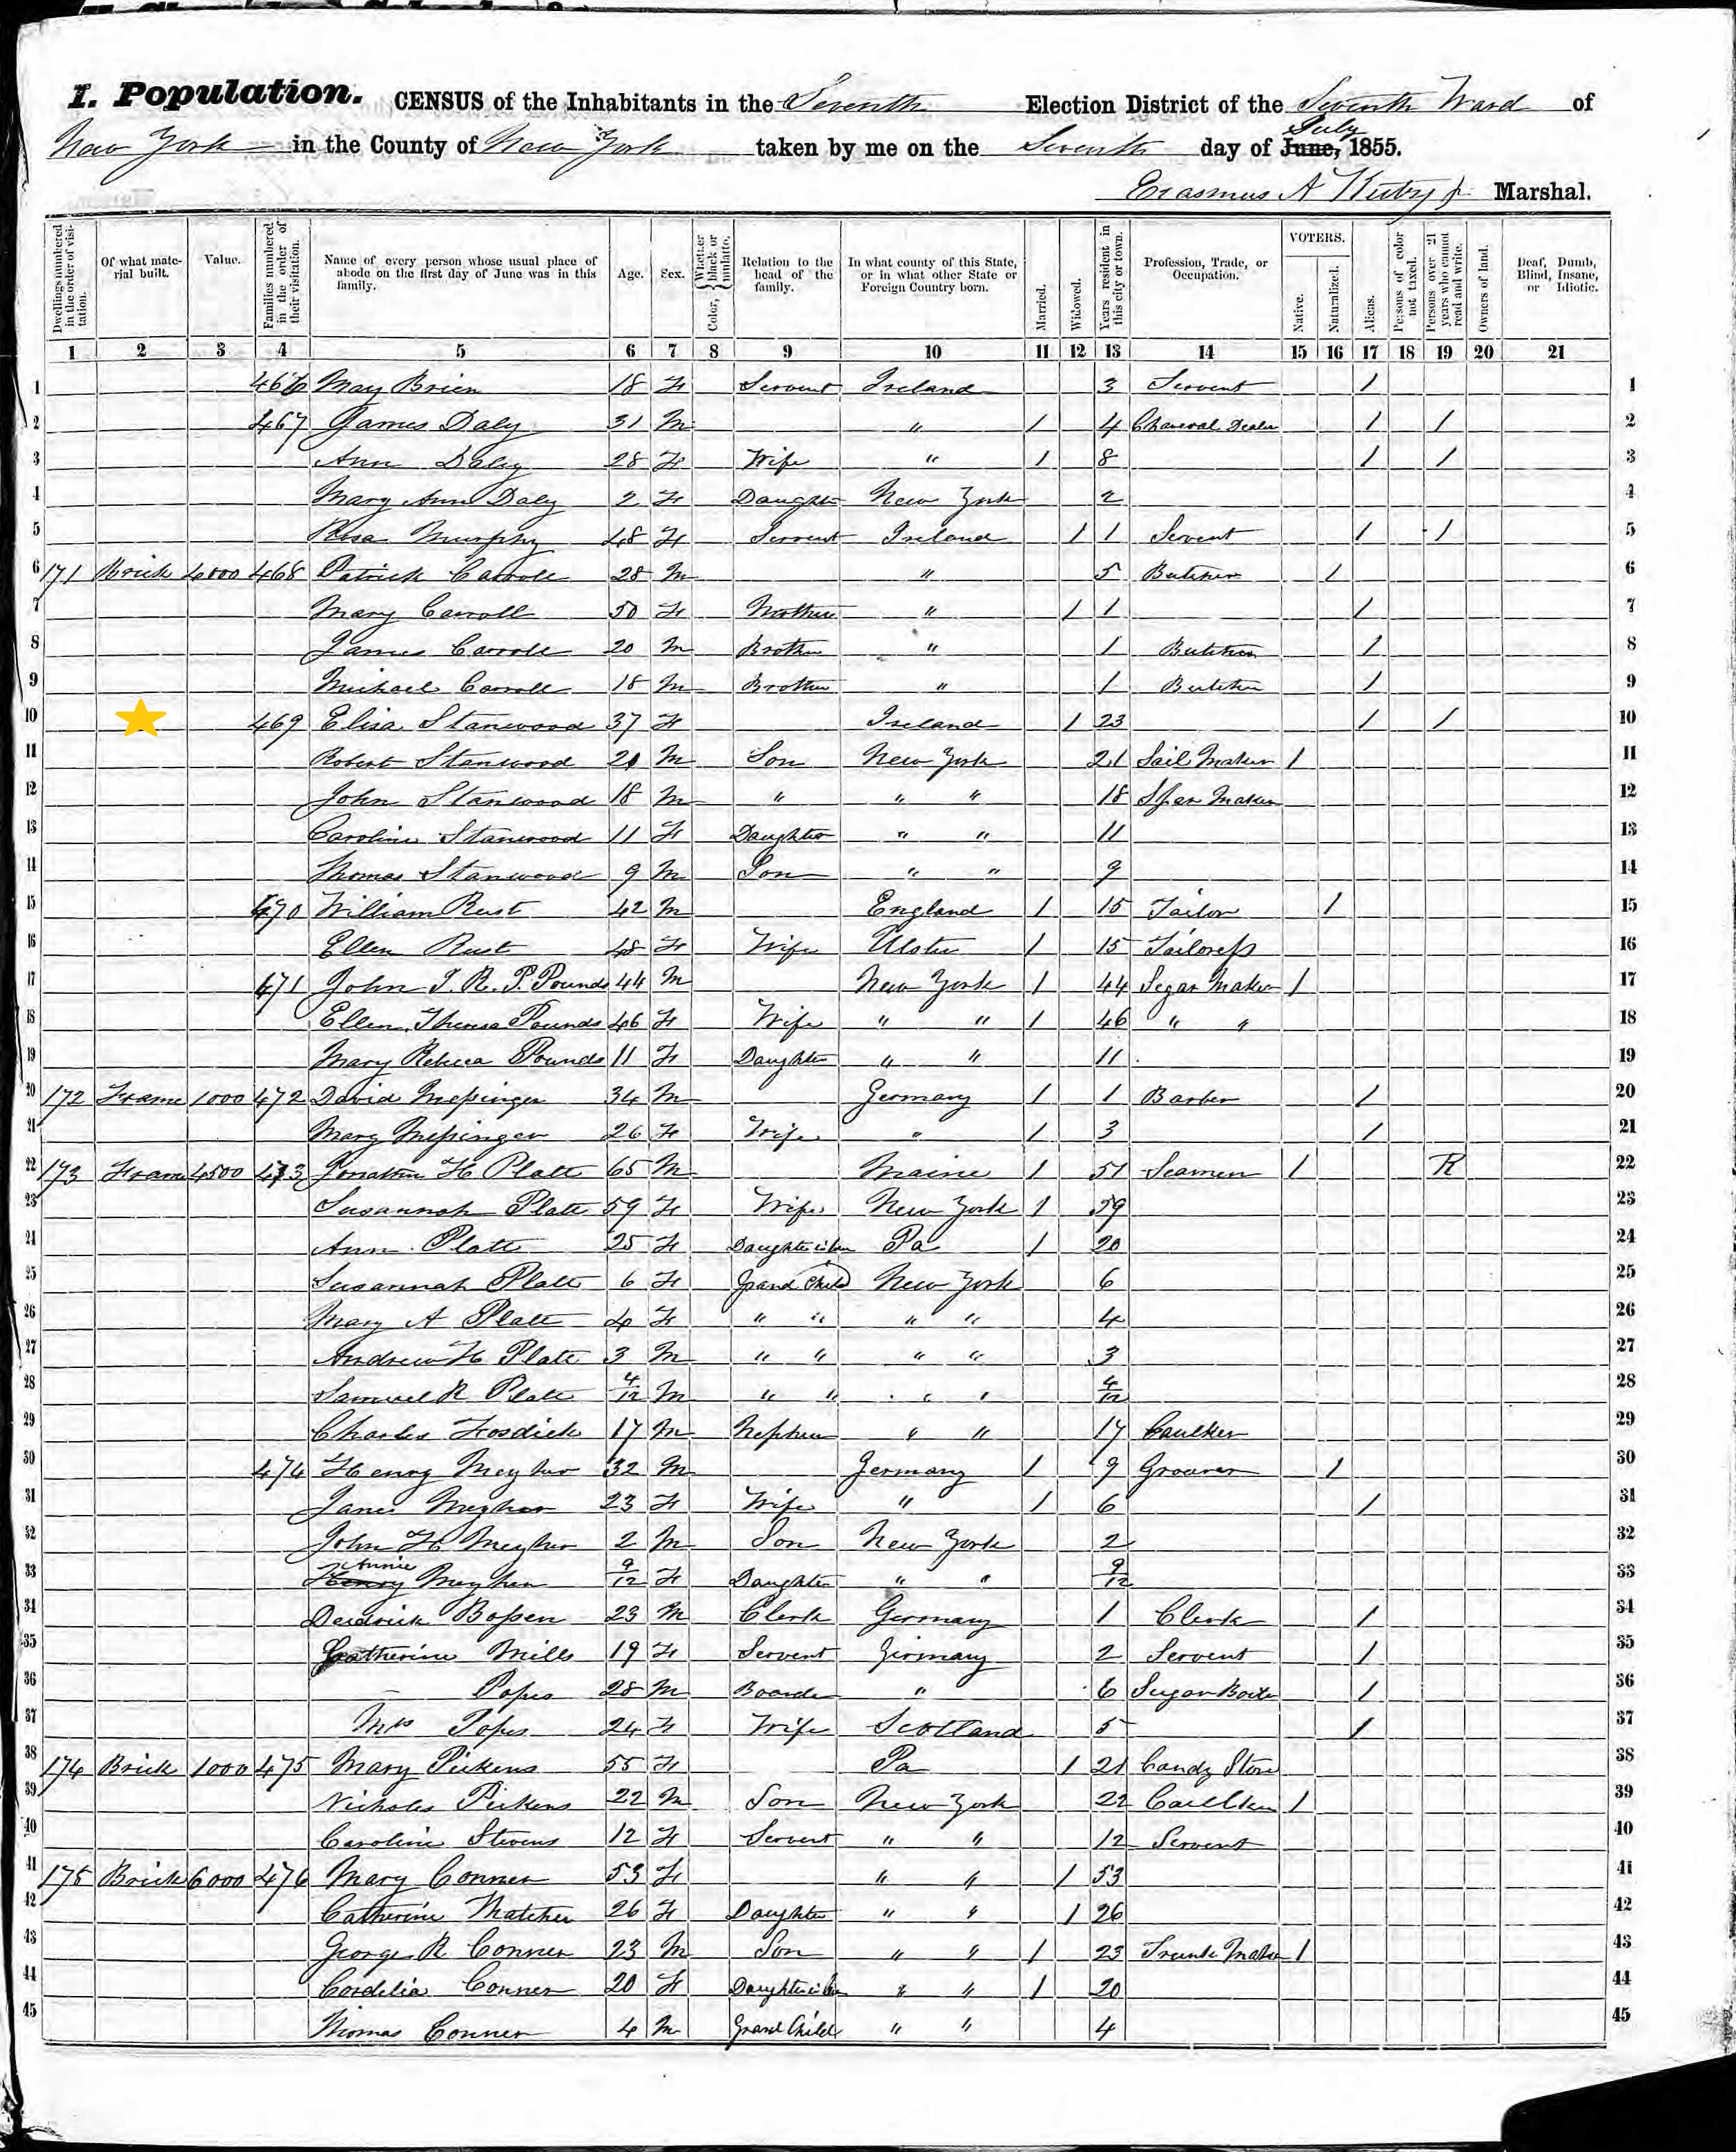 I. Population. CENSUS of the Inhabitants in the Seventh Election District of the Seventh Ward of
New York in the County of New York taken by me on the Seventh day of June, July 1855.
Erasmus A Marshal.
Dwellings numbered in the order of visitation. Of what material built. Value. Families numbered in the order of their visitation. Name of every person whose usual place of abode on the first day of June was in this family. Age. Sex. Color, { Whether black or mulatto. Relation to the head of the family. In what county of this State, or in what other State or Foreign Country born. Married. Widowed. Years resident in this city or town. Profession, Trade, or Occupation. VOTERS. Native. Naturalized. Aliens. Persons of color not taxed. Persons over 21 years who cannot read and write. Owners of land. Deaf, Dumb, Blind, Insane, or Idiotic.
1 2 3 4 5 6 7 8 9 10 11 12 13 14 15 16 17 18 19 20 21
1 466 May Brien 18 F Servent Ireland 3 Servent / 1
2 467 James Daly 31 M " / 4 Charcoal Dealer / / 2
3 Ann Daly 28 F Wife " / 8 / / 3
4 Mary Ann Daly 2 F Daughter New York 2 4
5 Rosa Murphy 48 F Servent Ireland / 1 Servent / / 5
6 171 Brick 4000 468 Patrick Carroll 28 M " 5 Butcher / 6
7 Mary Carroll 50 F Mother " / 1 / 7
8 James Carroll 20 M Brother " 1 Butcher / 8
9 Michael Carroll 18 M Brother " 1 Butcher / 9
10 469 Eliza Stanwood 37 F Ireland / 23 / / 10
11 Robert Stanwood 21 M Son New York 21 Sail Maker / 11
12 John Stanwood 18 M " " " 18 Spar Maker 12
13 Caroline Stanwood 11 F Daughter " " 11 13
14 Thomas Stanwood 9 M Son " " 9 14
15 470 William Rust 42 M England / 15 Tailor / 15
16 Ellen Rust 48 F Wife Ulster / 15 Tailoress 16
17 471 John T. R. P. Pounds 44 M New York / 44 Segar Maker / 17
18 Ellen Theresa Pounds 46 F Wife " " / 46 " " 18
19 Mary Rebeca Pounds 11 F Daughter " " 11 19
20 172 Frame 1000 472 David Messinger 34 M Germany / 1 Barber / 20
21 Mary Messinger 26 F Wife " / 3 / 21
22 173 Frame 4500 473 Jonathan H Platt 65 M Maine / 51 Seamen / R 22
23 Susannah Platt 59 F Wife New York / 59 23
24 Ann Platt 25 F Daughter in law Pa / 20 24
25 Susannah Platt 6 F Grand Child New York 6 25
26 Mary A Platt 4 F " " " " 4 26
27 Andrew H Platt 3 M " " " " 3 27
28 Samuel R Platt 4/12 M " " " " 4/12 28
29 Charles Fosdick 17 M Nephew " " 17 Caulker 29
30 474 Henry Meyher 32 M Germany / 9 Groarer / 30
31 Jane Meyher 23 F Wife " / 6 / 31
32 John H Meyher 2 M Son New York 2 32
33 Henry Annie Meyher 9/12 F Daughter " " 9/12 33
34 Deidrick Bossen 23 M Clerk Germany 1 Clerk / 34
35 Catherine Mills 19 F Servent Germany 2 Servent / 35
36 — Popes 28 M Boarder " 6 Sugar Boiler / 36
37 Mrs Popes 24 F Wife Scotland 5 / 37
38 174 Brick 1000 475 Mary Pickens 55 F Pa / 21 Candy Store 38
39 Nicholas Pickens 22 M Son New York 22 Caulker / 39
40 Caroline Stevens 12 F Servent " " 12 Servent 40
41 175 Brick 6000 476 Mary Conner 53 F " " / 53 41
42 Catherine Thatcher 26 F Daughter " " / 26 42
43 George R Conner 23 M Son " " / 23 Trunk Maker / 43
44 Cordelia Conner 20 F Daughter in law " " / 20 44
45 Thomas Conner 4 M Grand Child " " 4 45